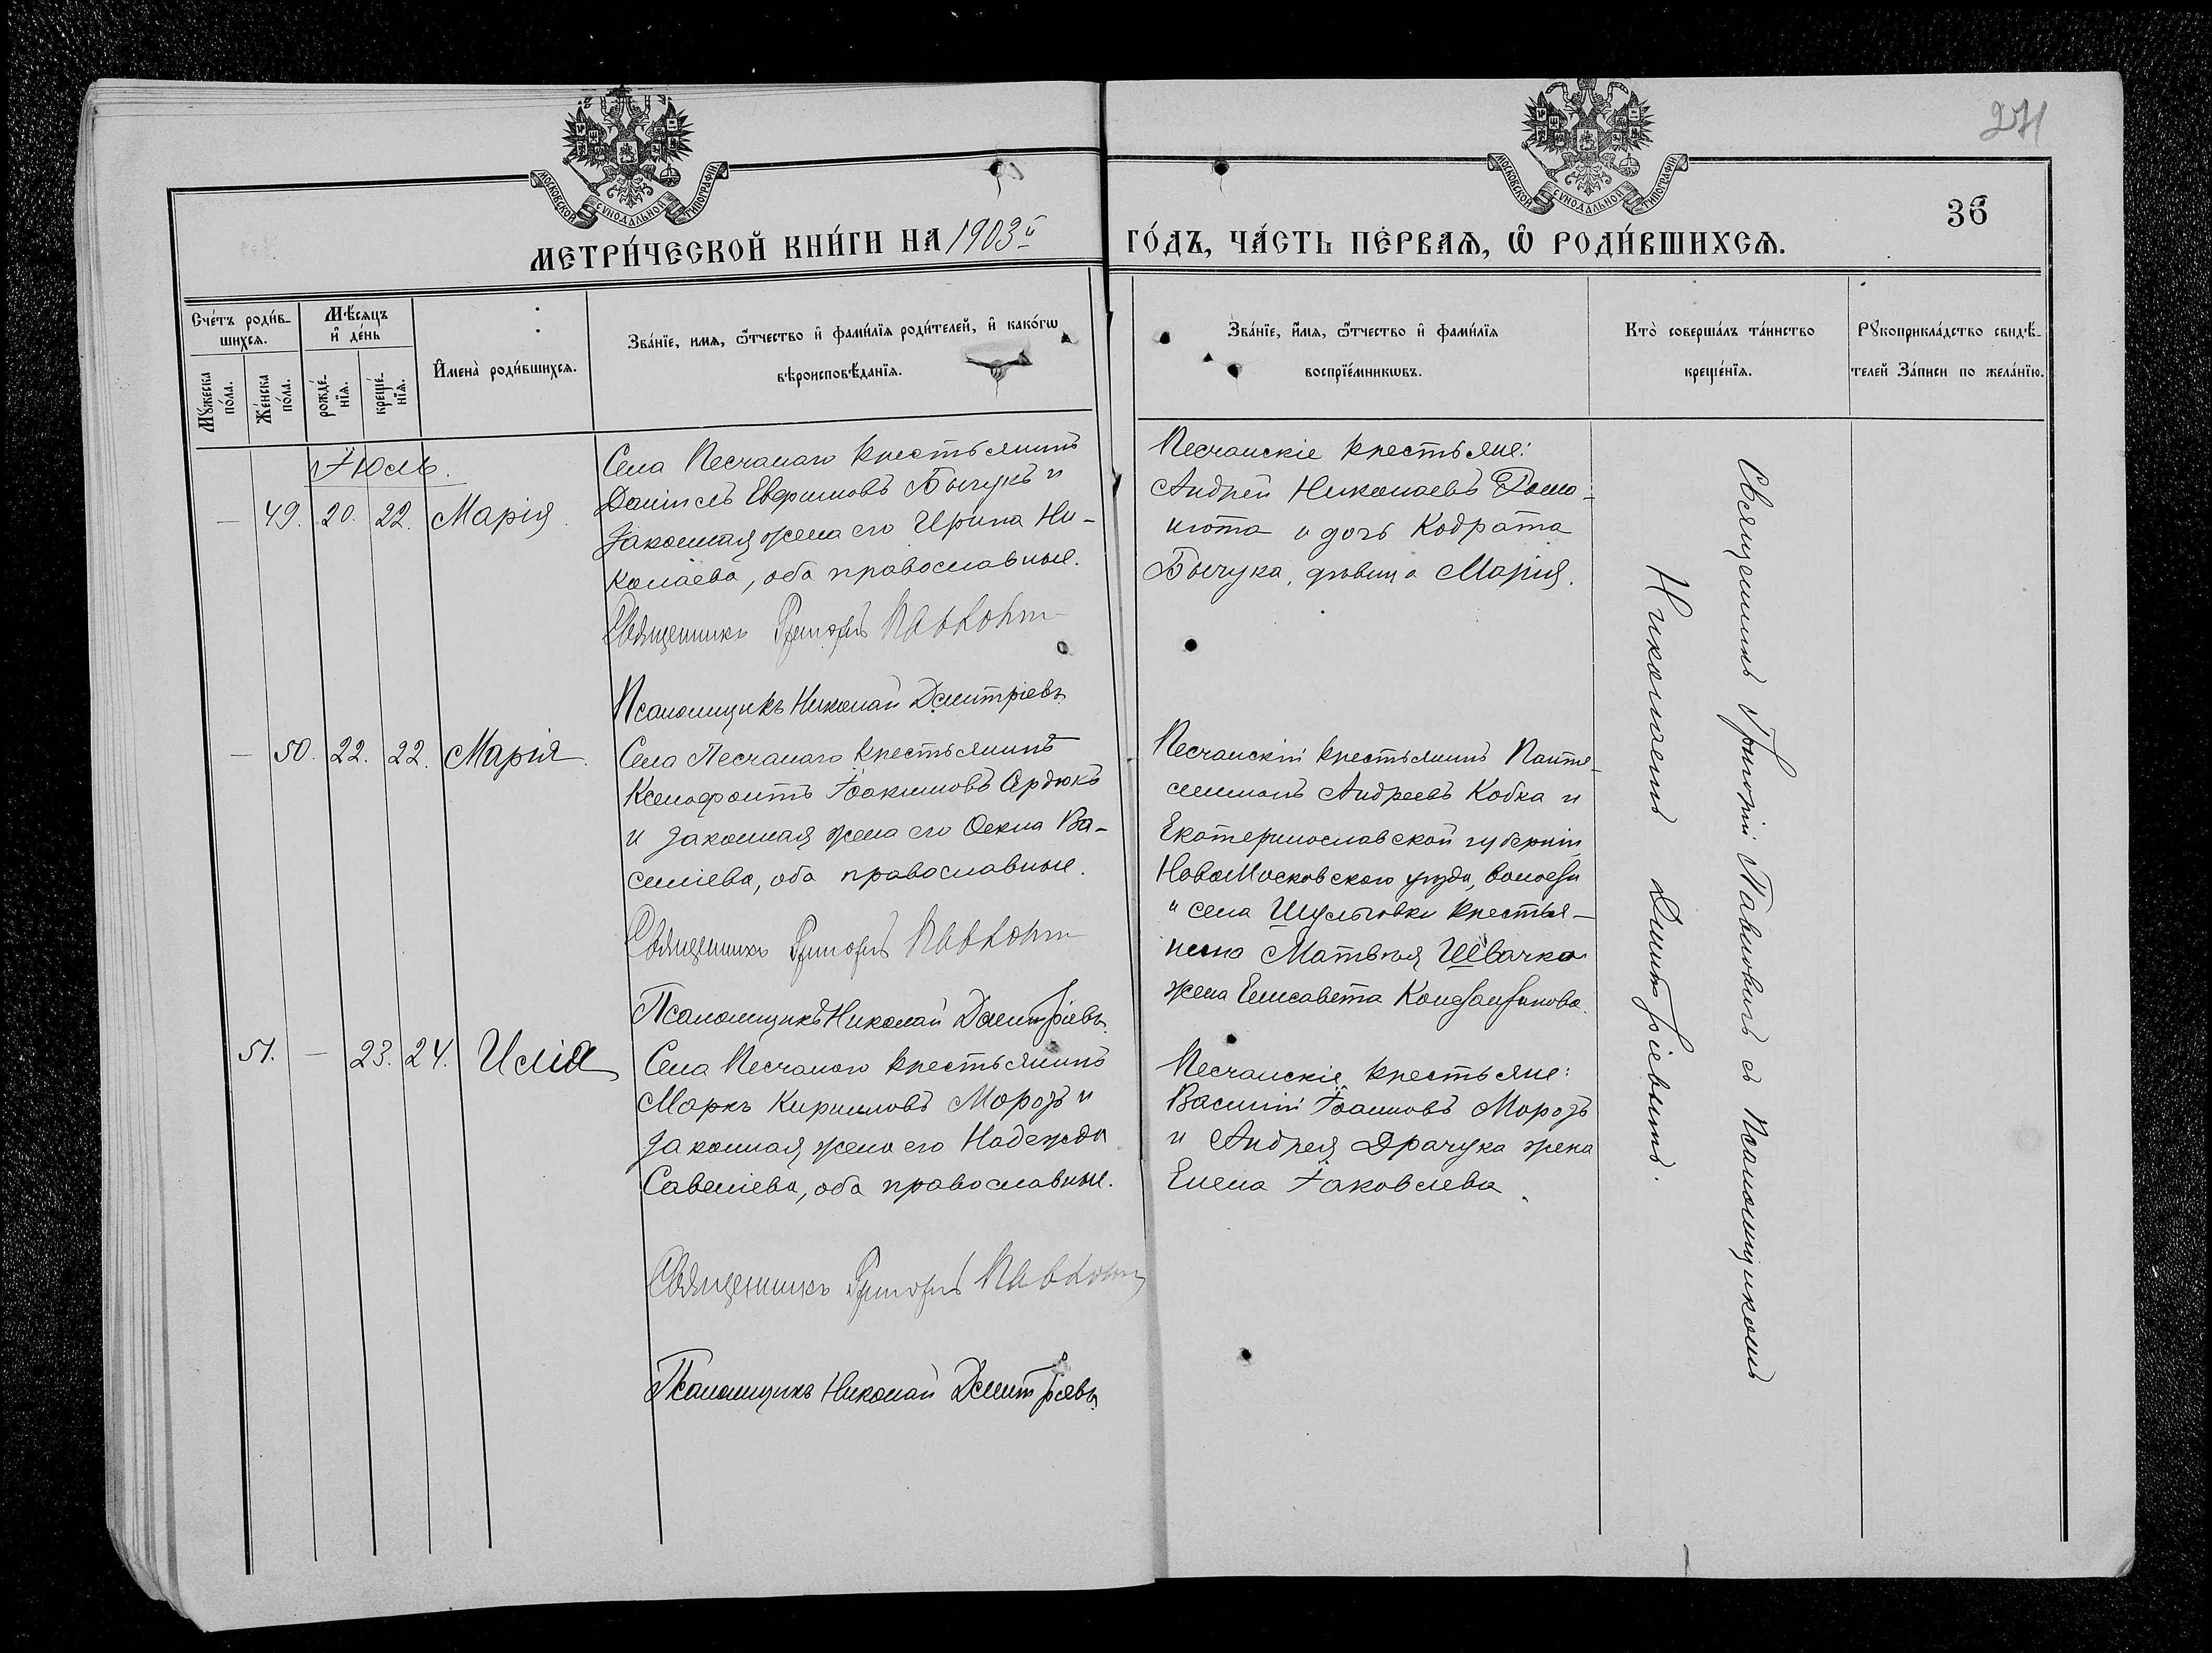 271
36
МОСКОВСКОЙ СѴНОДАЛЬНОЙ ТИПОГРАФІИ
МОСКОВСКОЙ СѴНОДАЛЬНОЙ ТИПОГРАФІИ
МЕТРИ́ЧЕСКОЙ КНИ́ГИ НА 1903й ГО́ДЪ, ЧА́СТЬ ПЕ́РВАѦ, Ѡ҆ РОДИ́ВШИХСѦ.
Сче́тъ роди́в-
шихсѧ.
Мꙋ́жеска по́ла.
Же́нска по́ла.
Мѣ́сѧцъ
и҆ де́нь
рожде́-
нїѧ.
креще́-
нїѧ.
И҆мена̀ роди́вшихсѧ.
Зва́нїе, имѧ, ѻ҆́тчество и҆ фами́лїѧ роди́телей, и҆ како́гѡ
вѣроисповѣ́данїѧ.
Зва́нїе, и҆́мѧ, ѻ҆́тчество и҆ фами́лїѧ
воспрїе́мникѡвъ.
Кто̀ соверша́лъ та́инство
креще́нїѧ.
Рꙋкоприкла́дство свидѣ́-
телей За́писи по жела́нїю.
Іюль.
— 49. 20. 22. Марія.
Села Песчанаго крестьянинъ
Даніилъ Евфимовъ Бычукъ и
законная жена его Ирина Ни-
колаева, оба православные.
Священникъ Григорій Павловичъ
Псаломщикъ Николай Дмитріевъ.
Песчанскіе крестьяне:
Андрей Николаевъ
и дочь Кодрата
Бычука, дѣвица Марія.
— 50. 22. 22. Марія.
Села Песчанаго крестьянинъ
Ксенофонтъ Іоакимовъ Сердюкъ
и законная жена его Ѳекла Ва-
силіева, оба православные.
Священникъ Григорій Павловичъ
Псаломщикъ Николай Дмитріевъ.
Песчанскій крестьянинъ Панте-
леимонъ Андреевъ Кобка и
Екатеринославской губерніи,
НовоМосковскаго уѣзда, волости
и села Шульговки крестья-
нина Матѳея Швачка
жена Елисавета Константинова.
51. — 23. 24. Илія
Села Песчанаго крестьянинъ
Маркъ Кирилловъ Морозъ и
законная жена его Надежда
Савеліева, оба православные.
Священникъ Григорій Павловичъ
Псаломщикъ Николай Дмитріевъ.
Песчанскіе крестьяне:
Василій Іоанновъ Морозъ
и Андрея Драчука жена
Елена Іаковлева.
Священникъ Григорій Павловичъ съ Псаломщикомъ
Николаемъ Дмитріевымъ.